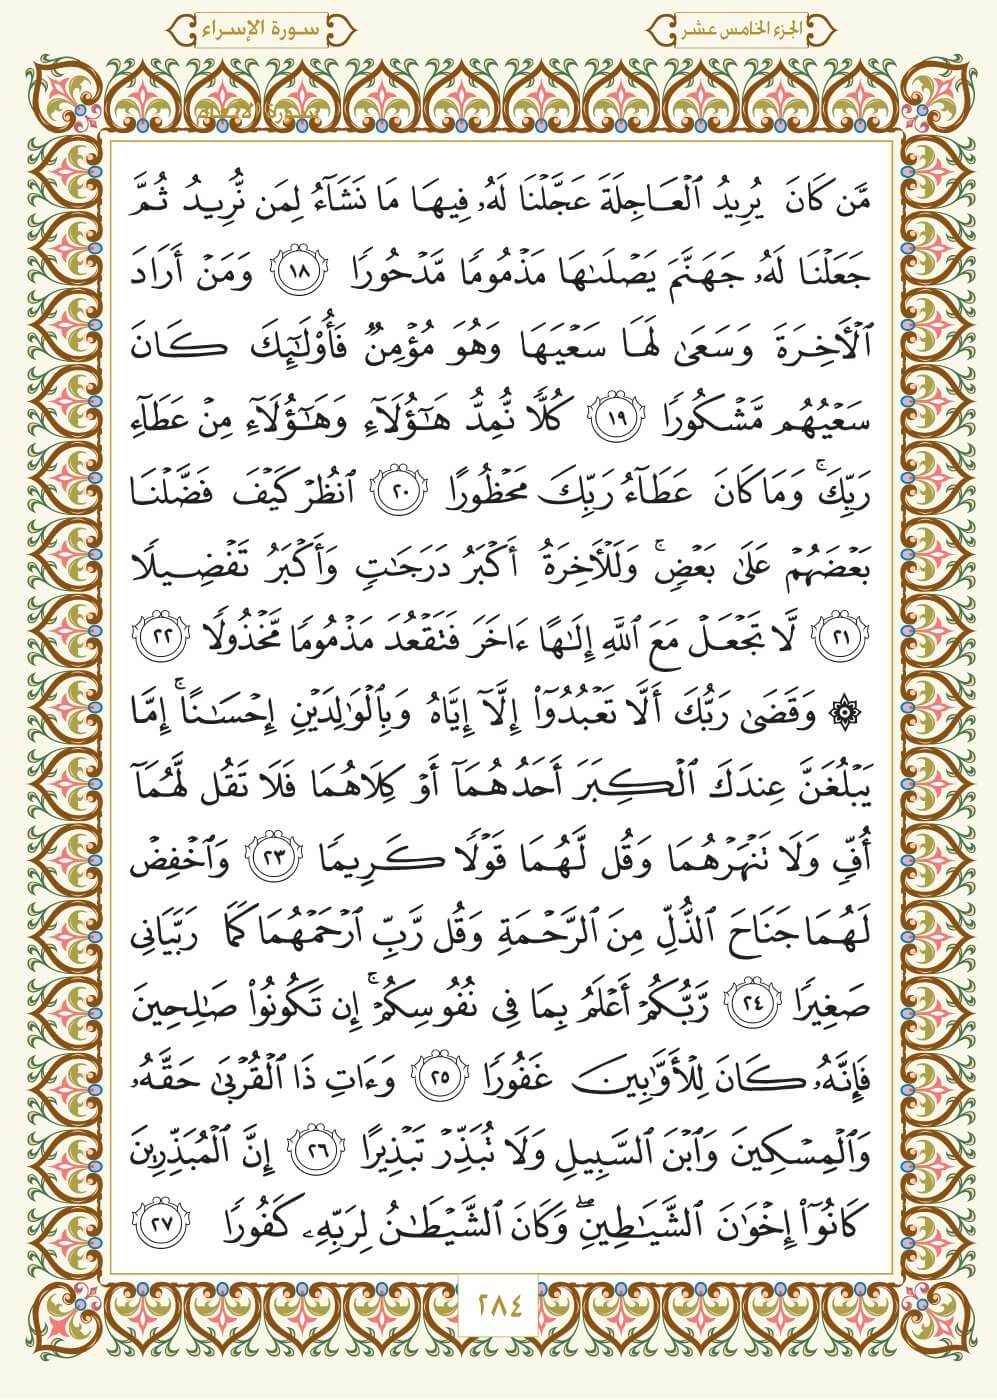 الجزء الخامس عشر
سورة الإسراء
مَّن كَانَ يُرِيدُ ٱلْعَاجِلَةَ عَجَّلْنَا لَهُۥ فِيهَا مَا نَشَآءُ لِمَن نُّرِيدُ ثُمَّ
جَعَلْنَا لَهُۥ جَهَنَّمَ يَصْلَىٰهَا مَذْمُومًا مَّدْحُورًا ١٨ وَمَنْ أَرَادَ
ٱلْأَخِرَةَ وَسَعَىٰ لَهَا سَعْيَهَا وَهُوَ مُؤْمِنٌ فَأُوْلَٰٓئِكَ كَانَ
سَعْيُهُم مَّشْكُورًا ١٩ كُلًّا نُّمِدُّ هَٰٓؤُلَآءِ وَهَٰٓؤُلَآءِ مِنْ عَطَآءِ
رَبِّكَۚ وَمَا كَانَ عَطَآءُ رَبِّكَ مَحْظُورًا ٢٠ ٱنظُرْ كَيْفَ فَضَّلْنَا
بَعْضَهُمْ عَلَىٰ بَعْضٍۚ وَلَلْأَخِرَةُ أَكْبَرُ دَرَجَٰتٍ وَأَكْبَرُ تَفْضِيلًا
٢١ لَّا تَجْعَلْ مَعَ ٱللَّهِ إِلَٰهًا ءَاخَرَ فَتَقْعُدَ مَذْمُومًا مَّخْذُولًا ٢٢
۞ وَقَضَىٰ رَبُّكَ أَلَّا تَعْبُدُوٓاْ إِلَّآ إِيَّاهُ وَبِٱلْوَٰلِدَيْنِ إِحْسَٰنًاۚ إِمَّا
يَبْلُغَنَّ عِندَكَ ٱلْكِبَرَ أَحَدُهُمَآ أَوْ كِلَاهُمَا فَلَا تَقُل لَّهُمَآ
أُفٍّ وَلَا تَنْهَرْهُمَا وَقُل لَّهُمَا قَوْلًا كَرِيمًا ٢٣ وَٱخْفِضْ
لَهُمَا جَنَاحَ ٱلذُّلِّ مِنَ ٱلرَّحْمَةِ وَقُل رَّبِّ ٱرْحَمْهُمَا كَمَا رَبَّيَانِى
صَغِيرًا ٢٤ رَّبُّكُمْ أَعْلَمُ بِمَا فِى نُفُوسِكُمْۚ إِن تَكُونُواْ صَٰلِحِينَ
فَإِنَّهُۥ كَانَ لِلْأَوَّٰبِينَ غَفُورًا ٢٥ وَءَاتِ ذَا ٱلْقُرْبَىٰ حَقَّهُۥ
وَٱلْمِسْكِينَ وَٱبْنَ ٱلسَّبِيلِ وَلَا تُبَذِّرْ تَبْذِيرًا ٢٦ إِنَّ ٱلْمُبَذِّرِينَ
كَانُوٓاْ إِخْوَٰنَ ٱلشَّيَٰطِينِۖ وَكَانَ ٱلشَّيْطَٰنُ لِرَبِّهِۦ كَفُورًا ٢٧
٢٨٤